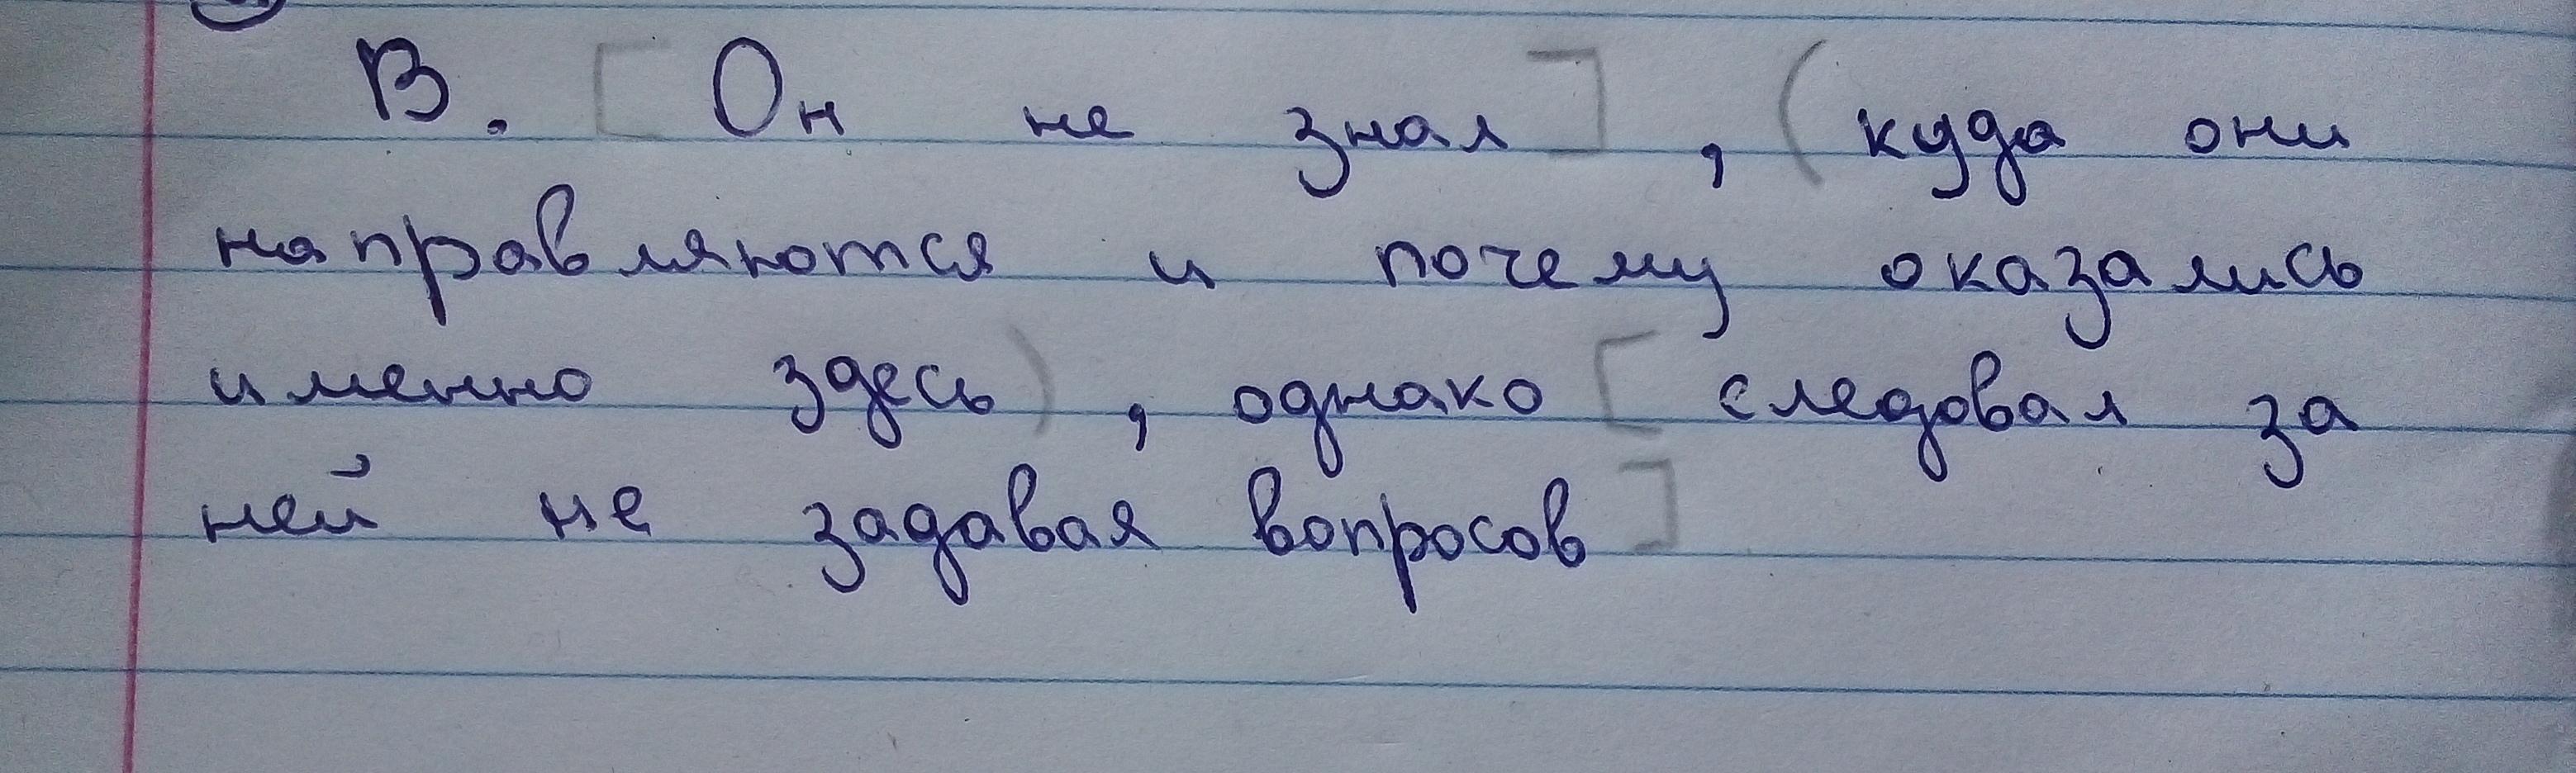 В. [ Он не знал ] , ( куда они
направляются и почему оказались
именно здесь ) , однако [ следовал за
ней не задавая вопросов ]